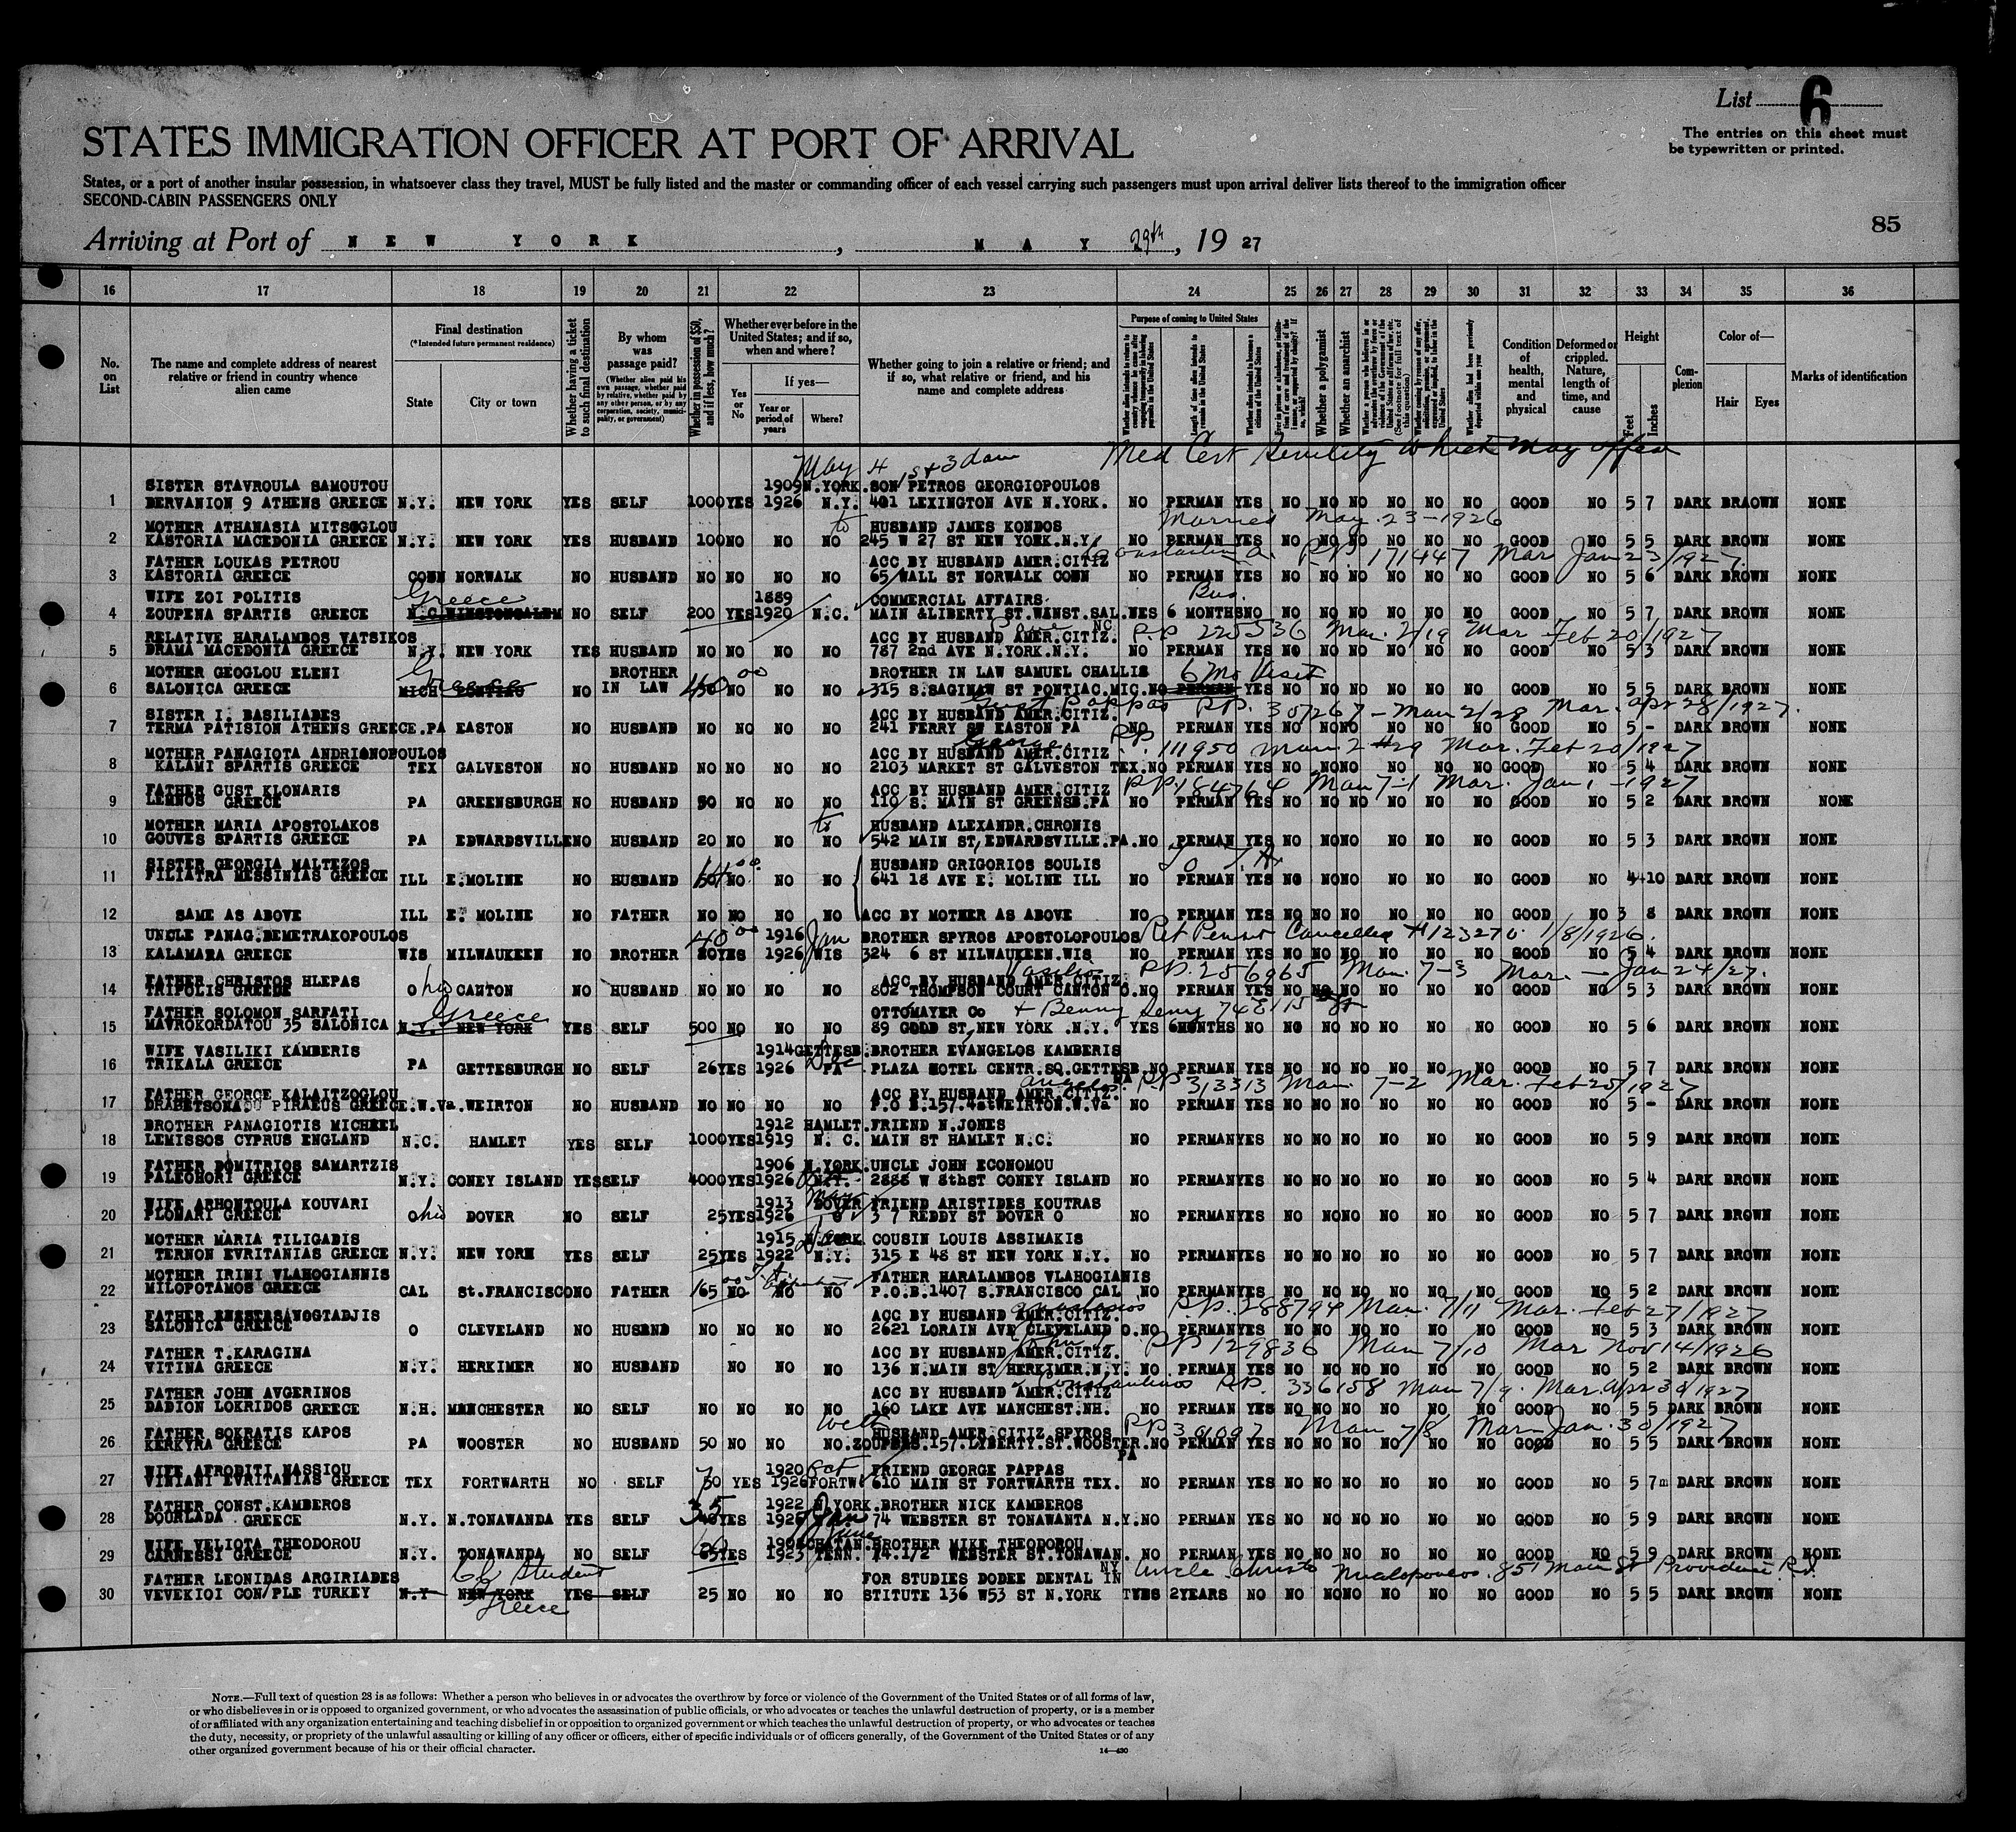 List 6
The entries on this sheet must
be typewritten or printed.
STATES IMMIGRATION OFFICER AT PORT OF ARRIVAL
States, or a port of another insular possession, in whatsoever class they travel, MUST be fully listed and the master or commanding officer of each vessel carrying such passengers must upon arrival deliver lists thereof to the immigration officer
SECOND-CABIN PASSENGERS ONLY
85
Arriving at Port of NEW YORK, MAY 29th, 1927
16 17 18 19 20 21 22 23 24 25 26 27 28 29 30 31 32 33 34 35 36
No. on List
The name and complete address of nearest relative or friend in country whence alien came
Final destination
(*Intended future permanent residence)
State
City or town
Whether having a ticket to such final destination
By whom was passage paid?
(Whether alien paid his own passage, whether paid by relative, whether paid by any other person, or by any corporation, society, municipality, or government)
Whether in possession of $50, and if less, how much?
Whether ever before in the United States; and if so, when and where?
Yes or No
If yes—
Year or period of years
Where?
Whether going to join a relative or friend; and if so, what relative or friend, and his name and complete address
Purpose of coming to United States
Length of time alien intends to remain in the United States
Whether alien intends to become a citizen of the United States
Whether a polygamist
Whether an anarchist
Condition of health, mental and physical
Deformed or crippled. Nature, length of time, and cause
Height
Feet
Inches
Complexion
Color of—
Hair
Eyes
Marks of identification
May 4 1st 3 dau Med Cert Senility which may affect
SISTER STAVROULA SAMOUTOU 1909 N.YORK. SON PETROS GEORGIOPOULOS
1 DERVANION 9 ATHENS GREECE N.Y. NEW YORK YES SELF 1000 YES 1926 N.Y. 401 LEXINGTON AVE N.YORK. NO PERMAN YES NO NO NO NO NO NO GOOD NO 5 7 DARK BRAOWN NONE
MOTHER ATHANASIA MITSOGLOU to HUSBAND JAMES KONDOS Married May 23-1926
2 KASTORIA MACEDONIA GREECE N.Y. NEW YORK YES HUSBAND 100 NO NO NO 245 W 27 ST NEW YORK.N.Y. NO PERMAN YES NO NO NO NO NO NO GOOD NO 5 5 DARK BROWN NONE
FATHER LOUKAS PETROU ACC BY HUSBAND AMER.CITIZ Constantin A. P.P. 171447 Mar Jan 23/1927
3 KASTORIA GREECE CONN NORWALK NO HUSBAND NO NO NO NO 65 WALL ST NORWALK CONN NO PERMAN YES NO NO NO NO NO NO GOOD NO 5 6 DARK BROWN NONE
WIFE ZOI POLITIS Greece 1889 COMMERCIAL AFFAIRS. Bus.
4 ZOUPENA SPARTIS GREECE N.C. WINSTONSALEM NO SELF 200 YES 1920 N.C. MAIN &LIBERTY ST.WANST.SAL.NC YES 6 MONTHS NO NO NO NO NO NO NO GOOD NO 5 7 DARK BROWN NONE
RELATIVE HARALAMBOS VATSIKOS ACC BY HUSBAND AMER.CITIZ. P.P 225536 Man. 2/19 Mar Feb 20/1927
5 DRAMA MACEDONIA GREECE N.Y. NEW YORK YES HUSBAND NO NO NO NO 787 2nd AVE N.YORK.N.Y. NO PERMAN YES NO NO NO NO NO NO GOOD NO 5 3 DARK BROWN NONE
MOTHER GEOGLOU ELENI Greece BROTHER BROTHER IN LAW SAMUEL CHALLIS 6 Mo Visit
6 SALONICA GREECE MICH PONTIAC NO IN LAW 450 NO NO NO 315 S.SAGINAW ST PONTIAC.MIC. NO PERMAN YES NO NO NO NO NO NO GOOD NO 5 5 DARK BROWN NONE
SISTER I. BASILIADES ACC BY HUSBAND AMER.CITIZ. Gust Pappas P.P. 307267 - Man 2/28 Mar. Apr 28/1927.
7 TERMA PATISION ATHENS GREECE. PA EASTON NO HUSBAND NO NO NO NO 241 FERRY ST EASTON PA NO PERMAN YES NO NO NO NO NO NO GOOD NO 5 - DARK BROWN NONE
MOTHER PANAGIOTA ANDRIONOPOULOS ACC BY HUSBAND AMER.CITIZ George P.P. 111950 Man 2 #29 Mar. Feb 20/1927
8 KALAMI SPARTIS GREECE TEX GALVESTON NO HUSBAND NO NO NO NO 2103 MARKET ST GALVESTON TEX. NO PERMAN YES NO NO NO NO NO NO GOOD NO 5 4 DARK BROWN NONE
FATHER GUST KLONARIS ACC BY HUSBAND AMER.CITIZ P.P. 184764 Man 7-1 Mar. Jan 1-1927
9 LEMNOS GREECE PA GREENSBURGH NO HUSBAND 50 NO NO NO 110 S. MAIN ST GREENSB.PA NO PERMAN YES NO NO NO NO NO NO GOOD NO 5 2 DARK BROWN NONE
MOTHER MARIA APOSTOLAKOS to HUSBAND ALEXANDR.CHRONIS
10 GOUVES SPARTIS GREECE PA EDWARDSVILLE NO HUSBAND 20 NO NO NO 542 MAIN ST,EDWARDSVILLE.PA. NO PERMAN YES NO NO NO NO NO NO GOOD NO 5 3 DARK BROWN NONE
SISTER GEORGIA MALTEZOS HUSBAND GRIGORIOS SOULIS
11 FILIATRA MESSINIAS GREECE ILL E.MOLINE NO HUSBAND NO NO NO 641 18 AVE E. MOLINE ILL NO PERMAN YES NO NO NO NO NO NO GOOD NO 4 10 DARK BROWN NONE
12 SAME AS ABOVE ILL E. MOLINE NO FATHER NO NO NO NO ACC BY MOTHER AS ABOVE NO PERMAN YES NO NO NO NO NO NO GOOD NO 3 8 DARK BROWN NONE
UNCLE PANAG.DEMETRAKOPOULOS 40 00 1916 Jan BROTHER SPYROS APOSTOLOPOULOS Ret Permit Cancelled #123270. 1/8/1926.
13 KALAMARA GREECE WIS MILWAUKEEN NO BROTHER YES 1926 WIS 324 6 ST MILWAUKEEN.WIS NO PERMAN YES NO NO NO NO NO NO GOOD NO 5 4 DARK BROWN NONE
FATHER CHRISTOS HLEPAS ACC BY HUSBAND AMER.CITIZ. Vasilios P.P. 256965 Man. 7-3 Mar. - Jan 24/27.
14 TRIPOLIS GREECE Ohio CANTON NO HUSBAND NO NO NO NO 802 THOMPSON COURT CANTON O. NO PERMAN YES NO NO NO NO NO NO GOOD NO 5 3 DARK BROWN NONE
FATHER SOLOMON SARFATI Greece OTTOMAYER Co + Benny Levy 74 E 115 St
15 MAVROKORDATOU 35 SALONICA N.Y. NEW YORK YES SELF 500 NO NO NO 89 GOLD ST,NEW YORK .N.Y. YES 6MONTHS NO NO NO NO NO NO NO GOOD NO 5 6 DARK BROWN NONE
WIFE VASILIKI KAMBERIS 1914 GETTESB. BROTHER EVANGELOS KAMBERIS
16 TRIKALA GREECE PA GETTESBURGH NO SELF 26 YES 1926 PA PLAZA HOTEL CENTR.SQ.GETTESB. PA NO PERMAN YES NO NO NO NO NO NO GOOD NO 5 7 DARK BROWN NONE
FATHER GEORGE KALAITZOGLOU ACC BY HUSBAND AMER.CITIZ. Angelos P.P 313313 Man. 7-2 Mar. Feb 25/1927
17 DRAPETSONA PIRAEUS GREECE. W.Va. WEIRTON NO HUSBAND NO NO NO NO P.O B.157.4st WEIRTON.W.Va NO PERMAN YES NO NO NO NO NO NO GOOD NO 5 - DARK BROWN NONE
BROTHER PANAGIOTIS MICHEEL 1912 HAMLET. FRIEND N.JONES
18 LEMISSOS CYPRUS ENGLAND N.C. HAMLET YES SELF 1000 YES 1919 N. C. MAIN ST HAMLET N.C. NO PERMAN YES NO NO NO NO NO NO GOOD NO 5 9 DARK BROWN NONE
FATHER DOMITRIOS SAMARTZIS 1906 N.YORK. UNCLE JOHN ECONOMOU
19 PALEOHORI GREECE N.Y. CONEY ISLAND YES SELF 4000 YES 1926 N.Y. 2888 W 8thST CONEY ISLAND NO PERMAN YES NO NO NO NO NO NO GOOD NO 5 4 DARK BROWN NONE
WIFE ARHONTOULA KOUVARI 1913 May DOVER FRIEND ARISTIDES KOUTRAS
20 PLOMARI GREECE Ohio DOVER NO SELF 25 YES 1926 O 3 7 REDDY ST DOVER O NO PERMAN YES NO NO NO NO NO NO GOOD NO 5 7 DARK BROWN NONE
MOTHER MARIA TILIGADIS 1915 N.YORK COUSIN LOUIS ASSIMAKIS
21 TERNON EVRITANIAS GREECE N.Y. NEW YORK YES SELF 25 YES 1922 N.Y. 315 E 48 ST NEW YORK N.Y. NO PERMAN YES NO NO NO NO NO NO GOOD NO 5 7 DARK BROWN NONE
MOTHER IRINI VLAHOGIANNIS FATHER HARALAMBOS VLAHOGIANIS
22 MILOPOTAMOS GREECE CAL St.FRANCISCO NO FATHER 165 NO NO NO P.O.B.1407 S.FRANCISCO CAL NO PERMAN YES NO NO NO NO NO NO GOOD NO 5 2 DARK BROWN NONE
FATHER ACC BY HUSBAND AMER.CITIZ. Anastasios P.P. 288794 Man. 7/11 Mar. Feb 27/1927
23 SALONICA GREECE O CLEVELAND NO HUSBND NO NO NO NO 2621 LORAIN AVE CLEVELAND O. NO PERMAN YES NO NO NO NO NO NO GOOD NO 5 3 DARK BROWN NONE
FATHER T.KARAGINA ACC BY HUSBAND AMER.CITIZ. John P.P 129836 Man 7/10 Mar Nov 14/1926
24 VITINA GREECE N.Y. HERKIMER NO HUSBAND NO NO NO 136 N.MAIN ST HERKIMER.N.Y. NO PERMAN YES NO NO NO NO NO NO GOOD NO 5 2 DARK BROWN NONE
FATHER JOHN AVGERINOS ACC BY HUSBAND AMER.CITIZ Constantinos P.P. 336158 Man 7/9. Mar. Apr 30/1927
25 DADION LOKRIDOS GREECE N.H. MANCHESTER NO SELF NO NO NO NO 160 LAKE AVE MANCHEST.NH. NO PERMAN YES NO NO NO NO NO NO GOOD NO 5 5 DARK BROWN NONE
FATHER SOKRATIS KAPOS with HUSBAND AMER.CITIZ.SPYROS P.P 301097 Man 7/8 Mar Jan 30/1927
26 KERKYRA GREECE PA WOOSTER NO HUSBAND 50 NO NO NO .157.LYBERTY.ST.WOOSTER. PA NO PERMAN YES NO NO NO NO NO NO GOOD NO 5 5 DARK BROWN NONE
WIFE AFRODITI NASSIOU 1920 Oct FRIEND GEORGE PAPPAS
27 VINIANI EVRITANIAS GREECE TEX FORTWARTH NO SELF 50 YES 1926 FORTW 610 MAIN ST FORTWARTH TEX. NO PERMAN YES NO NO NO NO NO NO GOOD NO 5 7m DARK BROWN NONE
FATHER CONST.KAMBEROS 35 1922 N.YORK. BROTHER NICK KAMBEROS
28 DOURLADA GREECE N.Y. N.TONAWANDA YES SELF YES 74 WEBSTER ST TONAWANTA N.Y. NO PERMAN YES NO NO NO NO NO NO GOOD NO 5 9 DARK BROWN NONE
WIFE VELIOTA THEODOROU June CHATAN. BROTHER MIKE THEODOROU
29 CARNESSI GREECE N.Y. TONAWANDA NO SELF 65 YES 1923 TENN. 74.1/2 WEBSTER ST.TONAWAN. NY NO PERMAN YES NO NO NO NO NO NO GOOD NO 5 9 DARK BROWN NONE
FATHER LEONIDAS ARGIRIADES Student FOR STUDIES DODEE DENTAL IN Uncle Christo 851 Main St Providence R.I.
30 VEVEKIOI CON/PLE TURKEY N.Y NEW YORK Greece YES SELF 25 NO NO NO STITUTE 136 W53 ST N.YORK YES 2YEARS NO NO NO NO NO NO NO GOOD NO 5 5 DARK BROWN NONE
NOTE.—Full text of question 28 is as follows: Whether a person who believes in or advocates the overthrow by force or violence of the Government of the United States or of all forms of law,
or who disbelieves in or is opposed to organized government, or who advocates the assassination of public officials, or who advocates or teaches the unlawful destruction of property, or is a member
of or affiliated with any organization entertaining and teaching disbelief in or opposition to organized government or which teaches the unlawful destruction of property, or who advocates or teaches
the duty, necessity, or propriety of the unlawful assaulting or killing of any officer or officers, either of specific individuals or of officers generally, of the Government of the United States or of any
other organized government because of his or their official character.
14—430